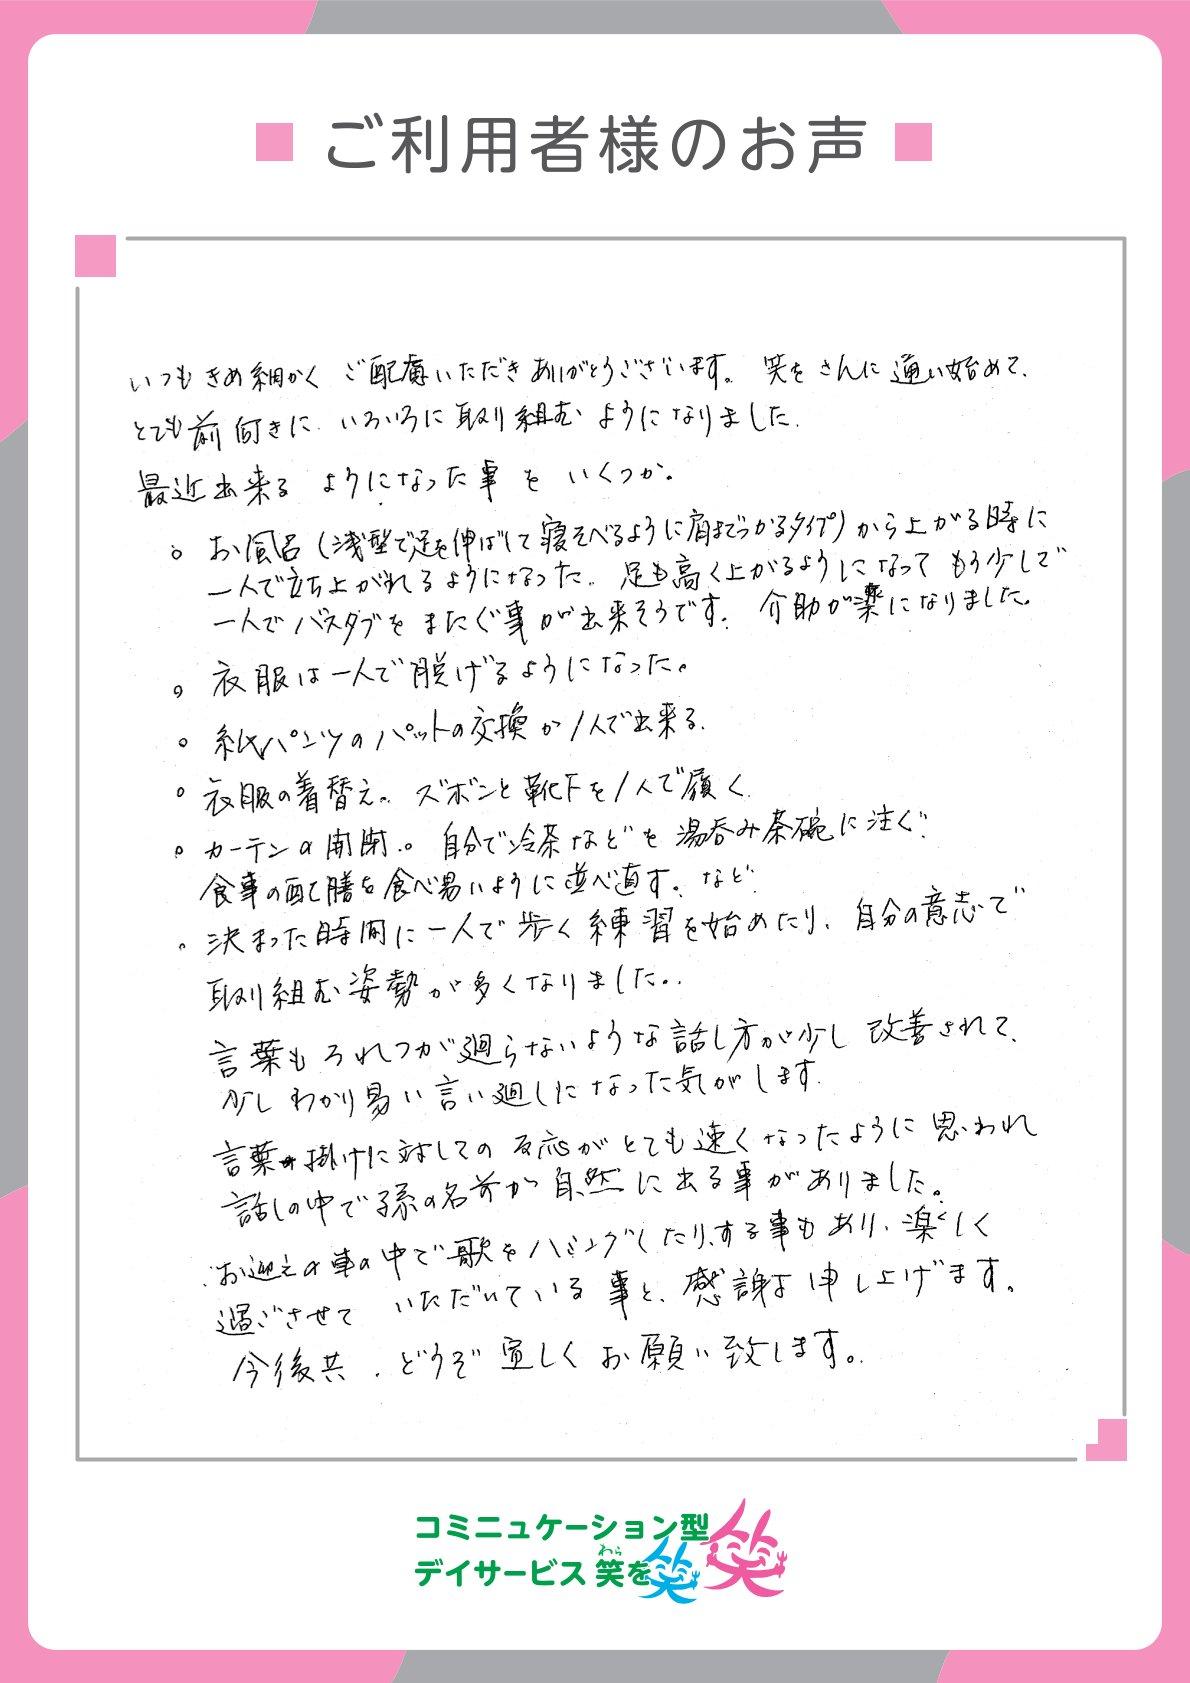 ご利用者様のお声
いつもきめ細かく ご配慮いただきありがとうございます。 笑をさんに通い始めて、
とても前向きに、いろいろに取り組むようになりました。
最近出来るようになった事をいくつか。
。お風呂(浅型で足を伸ばして寝そべるように肩までつかるタイプ)から上がる時に
一人で立ち上がれるようになった。足も高く上がるようになってもう少しで
一人でバスタブをまたぐ事が出来そうです。介助が楽になりました。
。衣服は一人で脱げるようになった。
。紙パンツのパットの交換が1人で出来る。
。衣服の着替え。ズボンと靴下を1人で履く
。カーテンの開閉。自分で冷茶などを湯呑み茶碗に注ぐ。
食事の配膳を食べ易いように並べ直す。など
。決まった時間に一人で歩く練習を始めたり、自分の意志で
取り組む姿勢が多くなりました。
言葉もろれつが廻らないような話し方が少し改善されて、
少しわかり易い言い廻しになった気がします。
言葉掛けに対しての反応がとても速くなったように思われ
話しの中で孫の名前が自然に出る事がありました。
お迎えの車の中で歌をハミングしたりする事もあり、楽しく
過ごさせていただいている事と、感謝申し上げます。
今後共、どうぞ宜しくお願い致します。
コミニュケーション型
デイサービス 笑を 笑 笑
わら